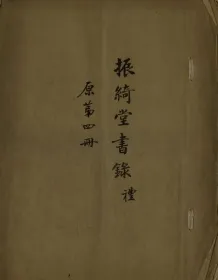 振綺堂書錄 禮
原第四冊